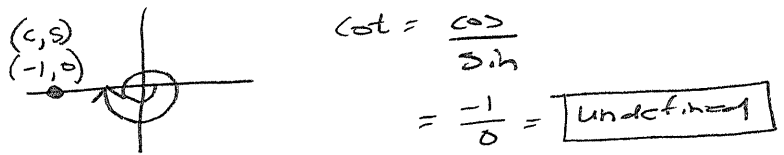 (c,s)
(-1,0)
cot = cos/sin
= -1/0 = undefined